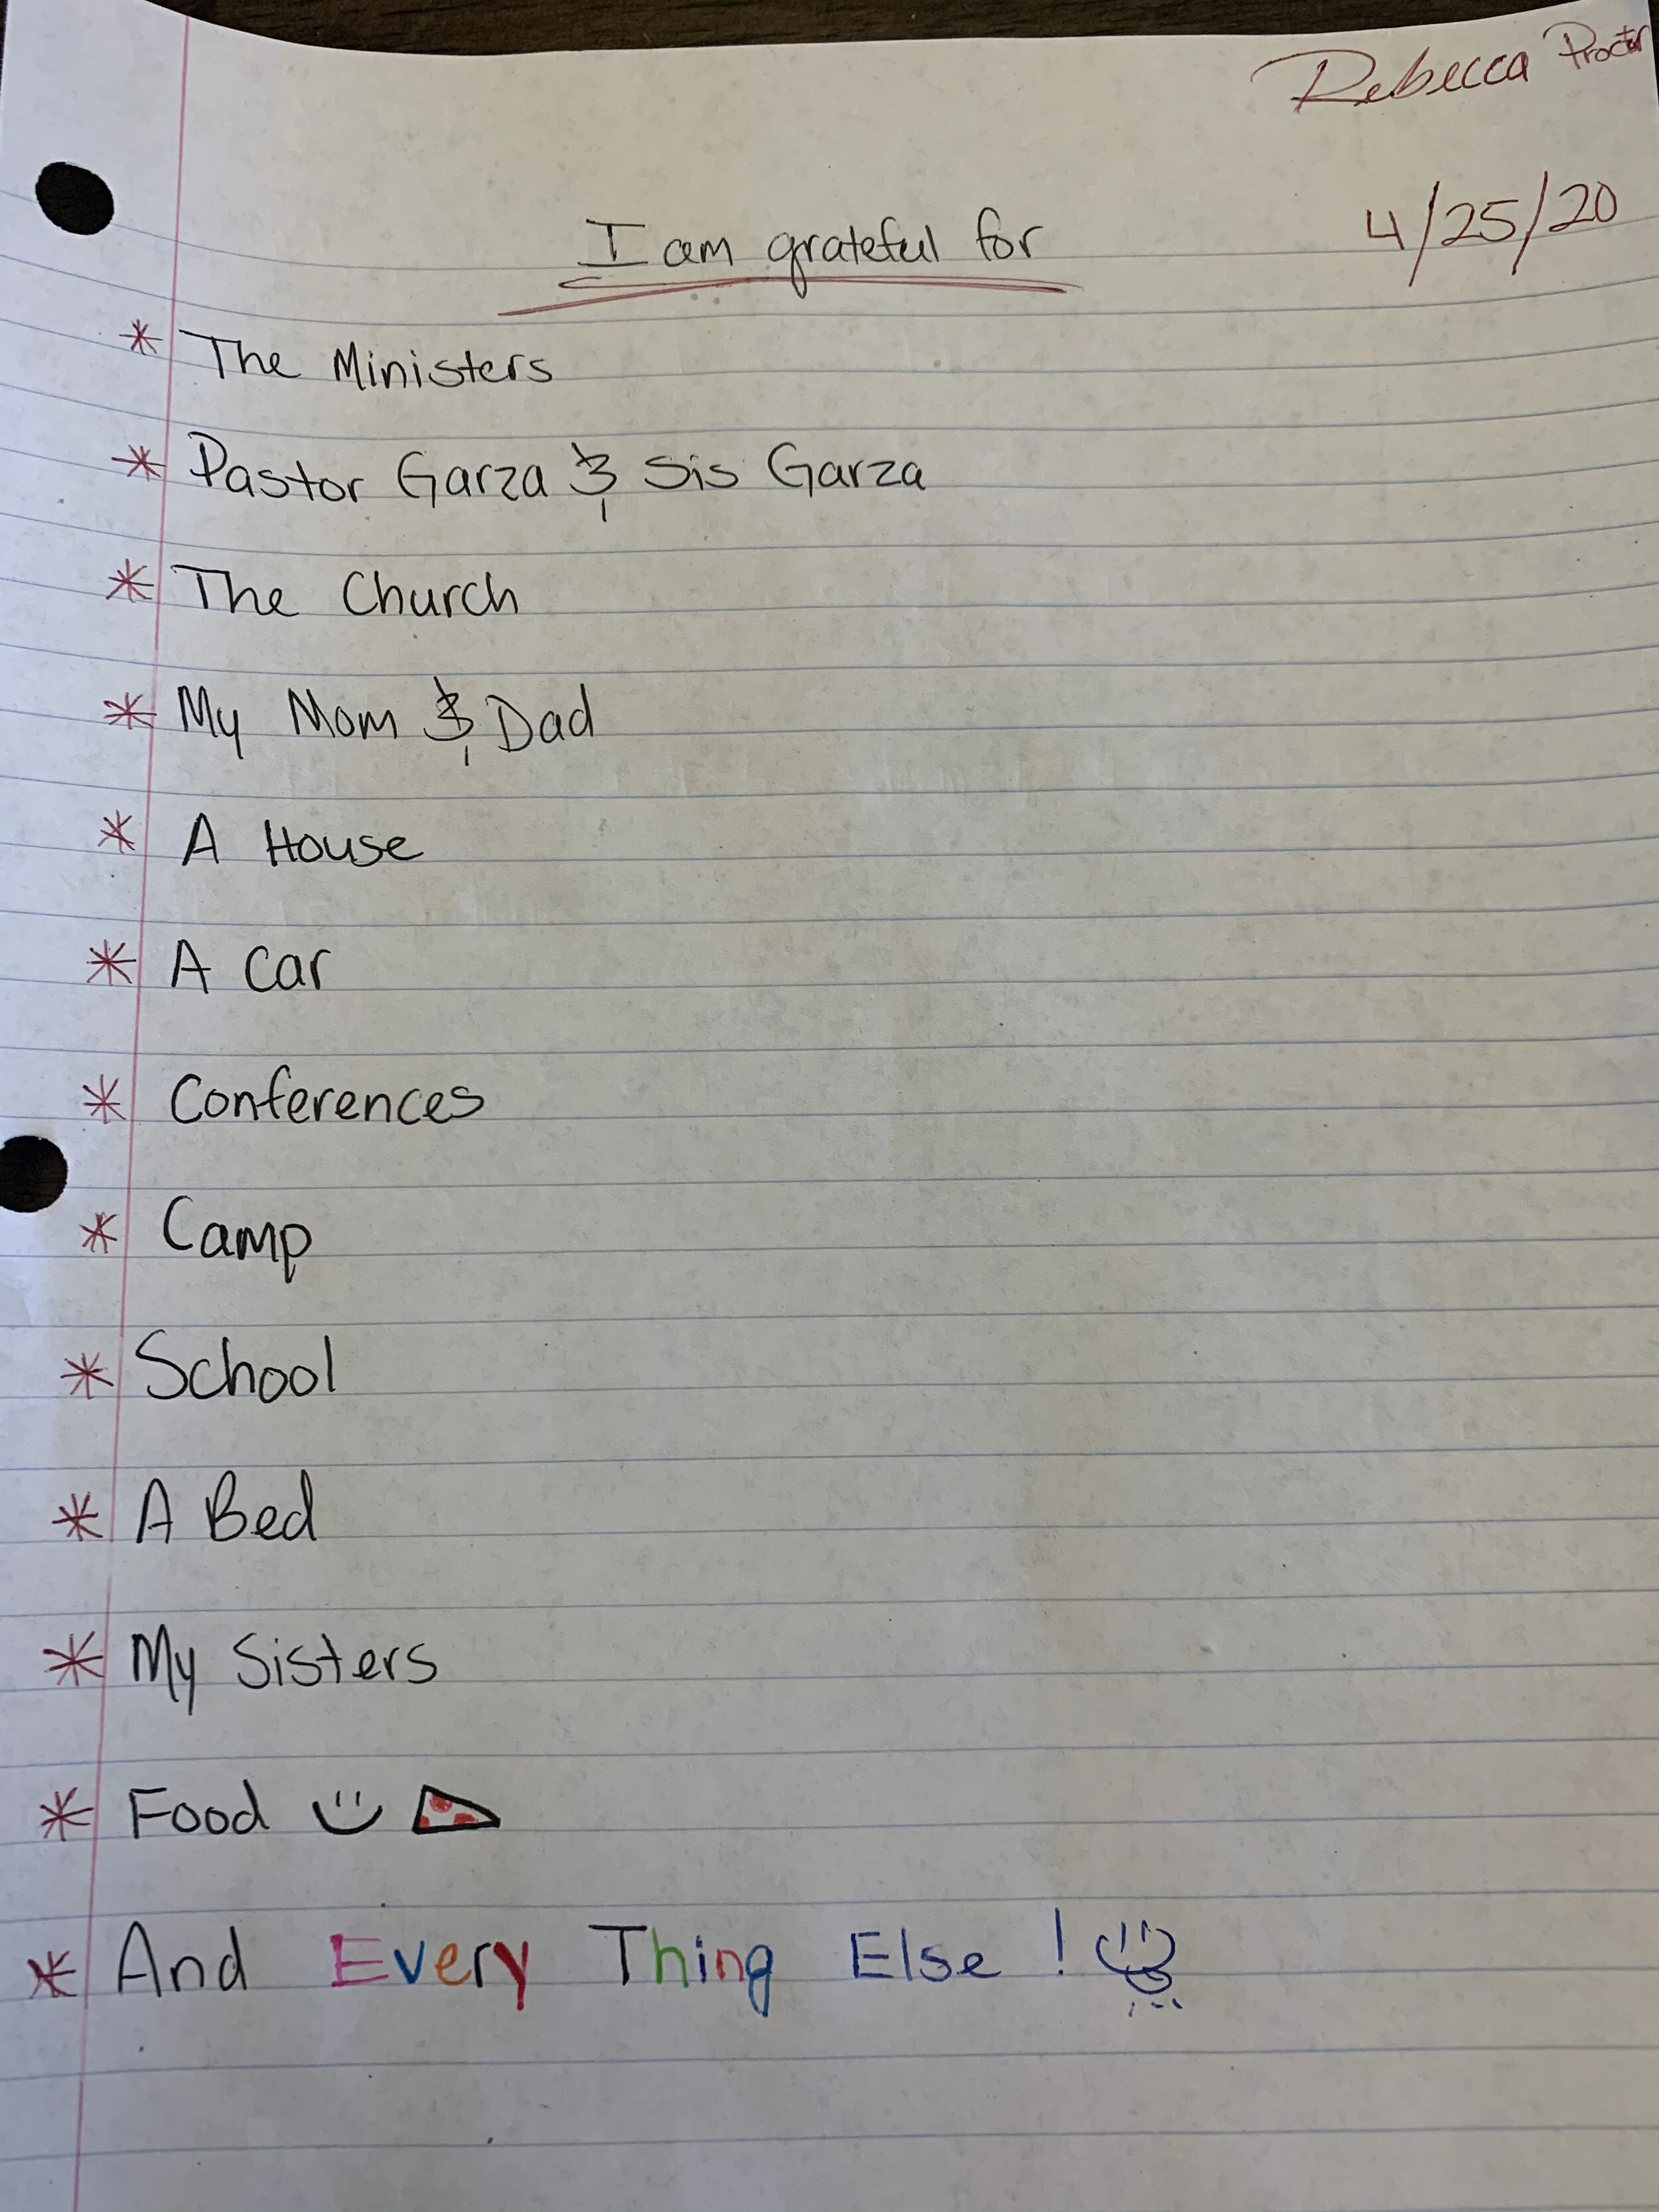 Rebecca Proctor
4/25/20
I am grateful for
* The Ministers
* Pastor Garza & Sis Garza
* The Church
* My Mom & Dad
* A House
* A Car
* Conferences
* Camp
* School
* A Bed
* My Sisters
* Food
* And Every Thing Else !